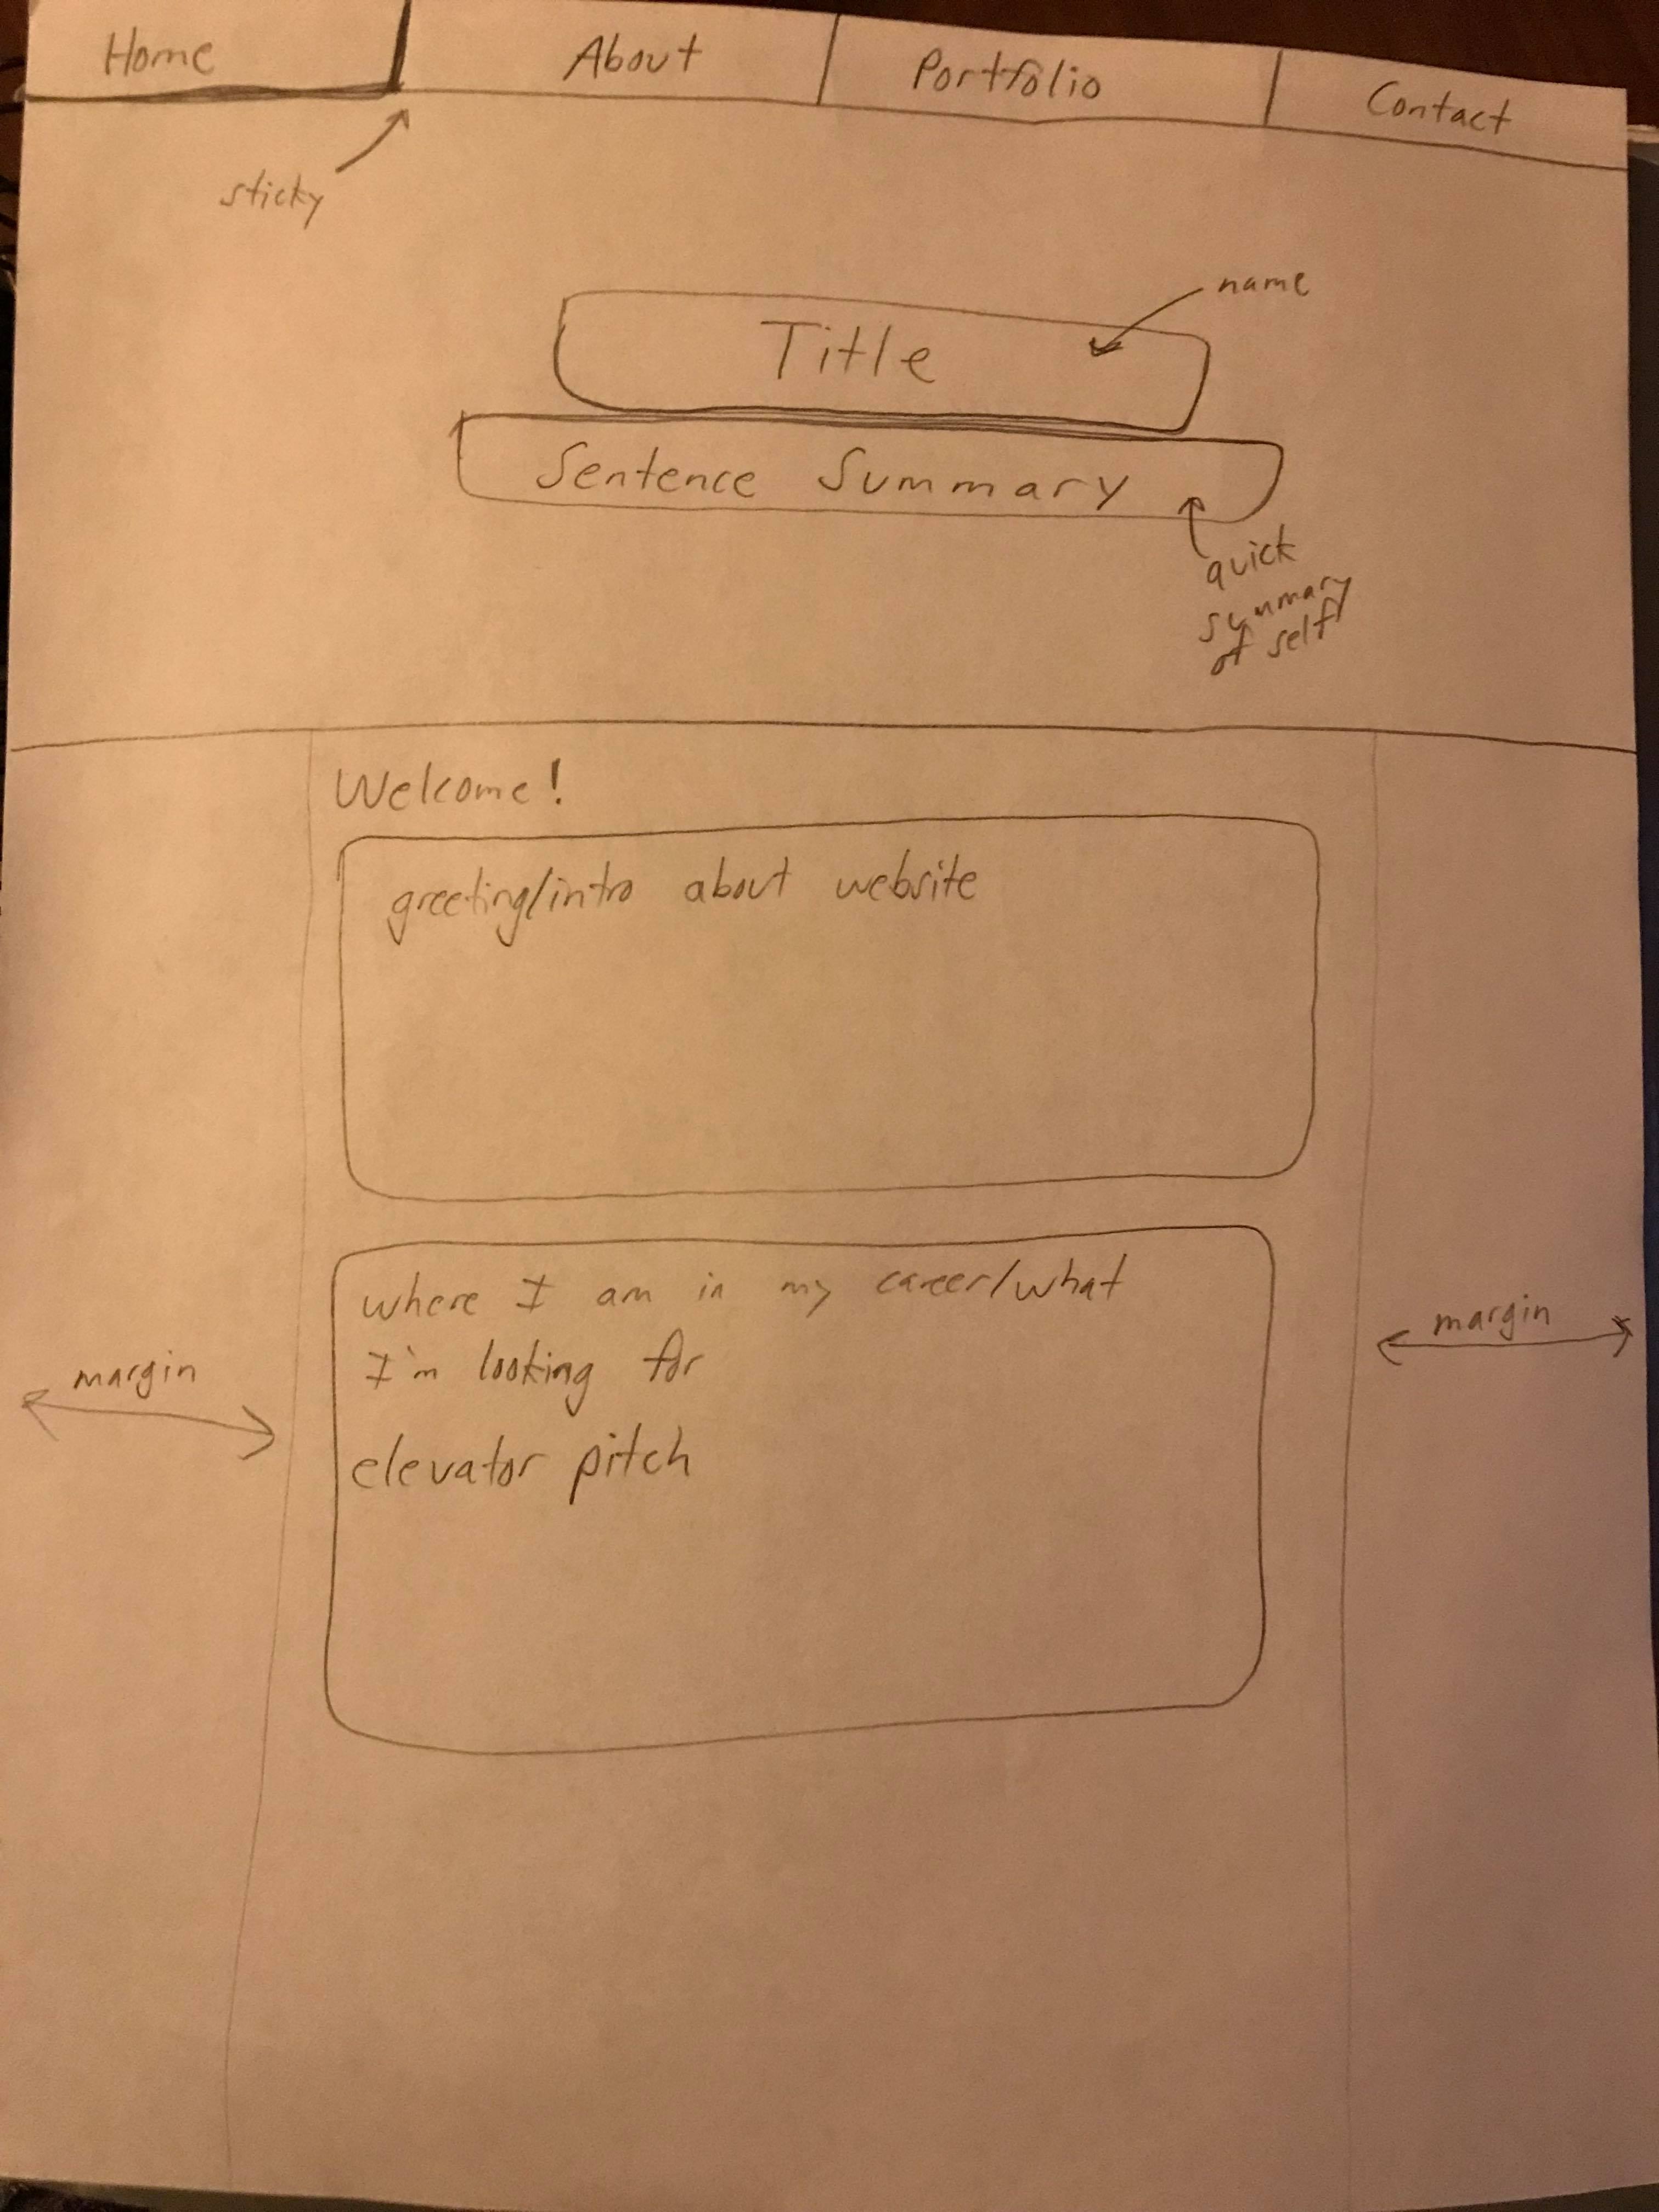 Home About Portfolio Contact
sticky
name
Title
Sentence Summary
quick
summary
of self
Welcome!
greeting/intro about website
where I am in my career/what
I'm looking for
elevator pitch
margin
margin